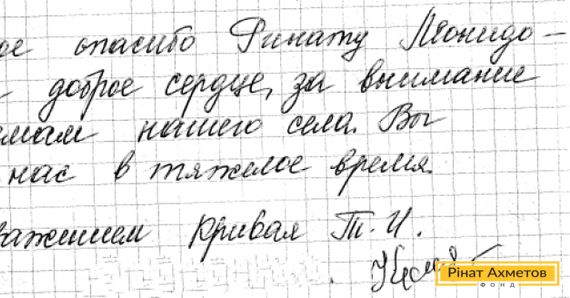 ое спасибо Ринату Леонидо-
доброе сердце, за внимание
емам нашего села. Вы
нас в тяжелое время.
важением Кривая Т. И.
Рінат Ахметов
ФОНД